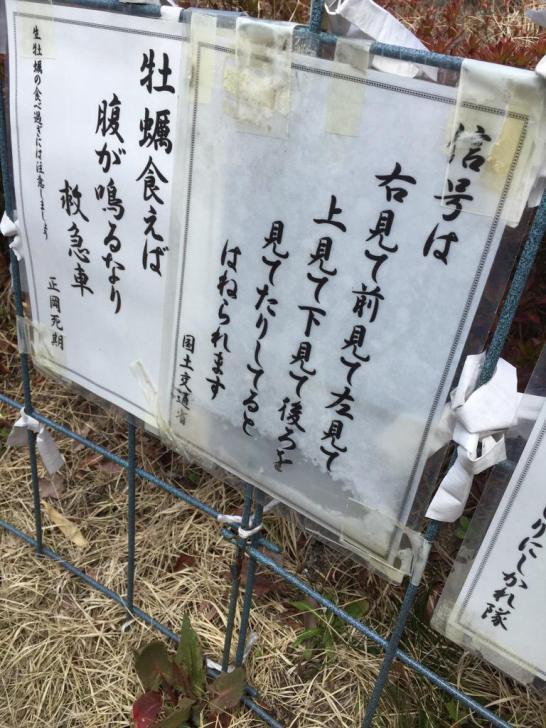 信号は
右見て前見て左見て
上見て下見て後ろを
見てたりしてると
はねられます
国土交通省
牡蠣食えば
腹が鳴るなり
救急車
正岡死期
生牡蠣の食べ過ぎには注意しましょう
りにしかれ隊